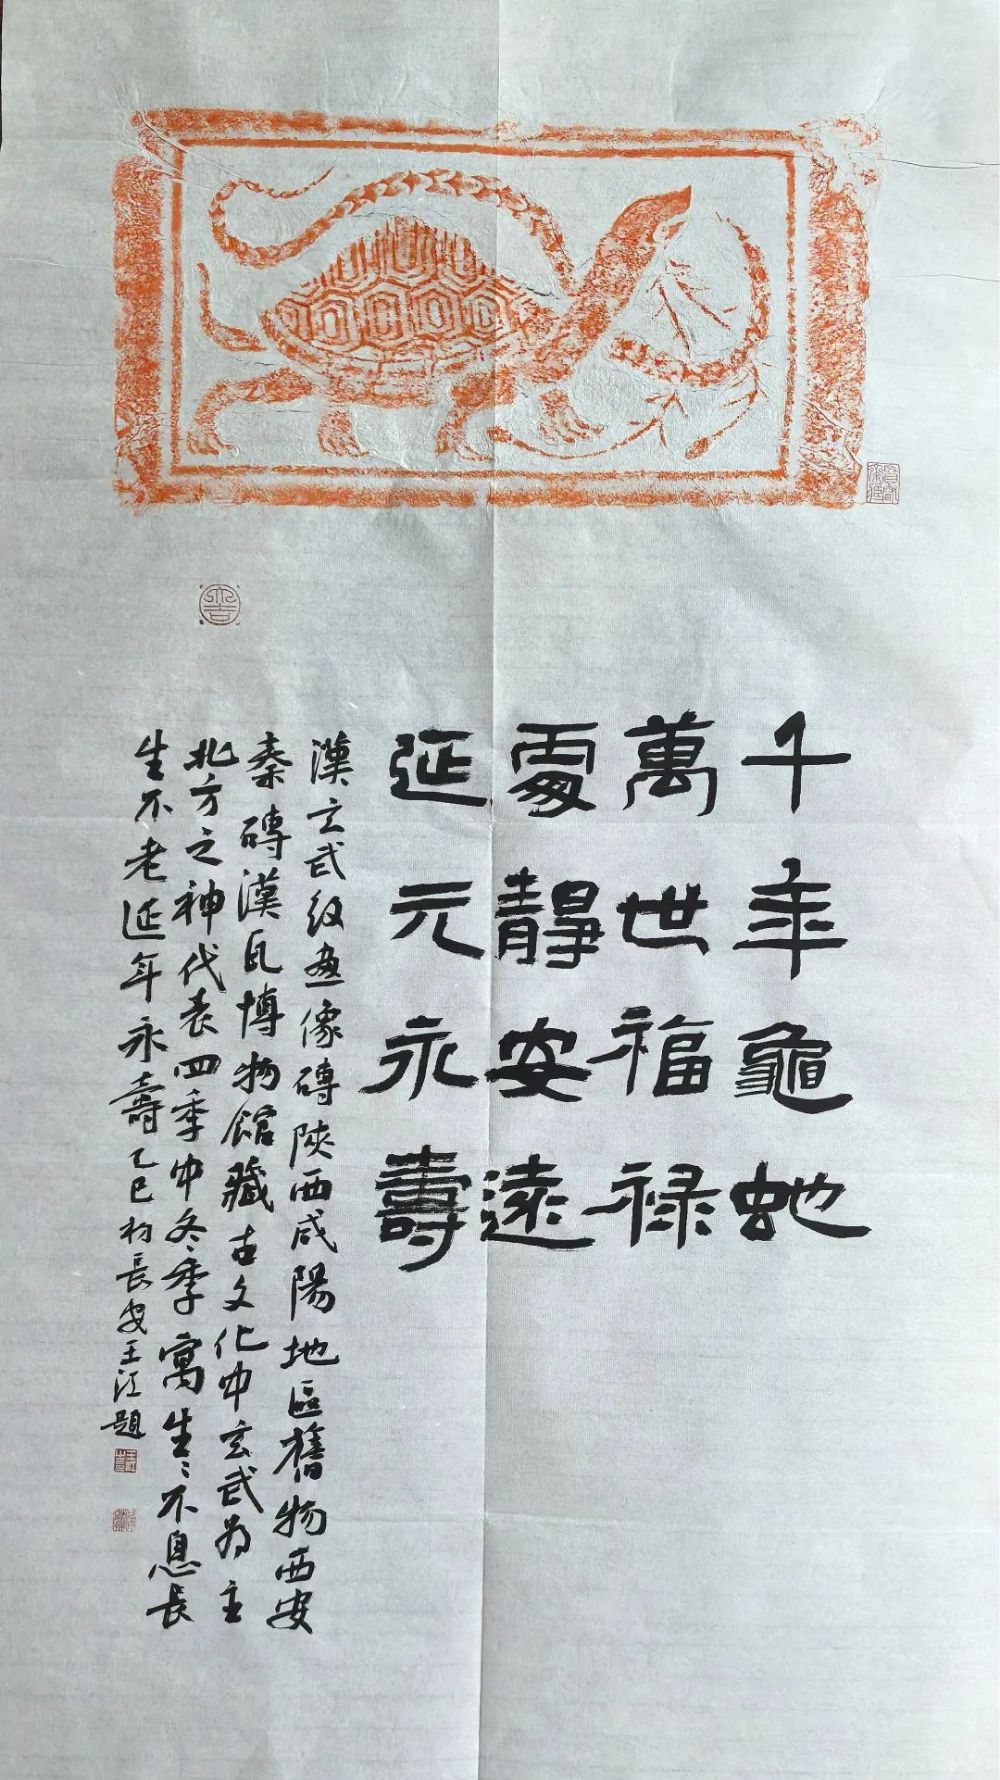 千年龜虵
萬世福禄
處靜安遠
延元永壽
漢玄武纹畫像磚陝西咸陽地區舊物西安
秦磚漢瓦博物館藏古文化中玄武为主
北方之神代表四季中冬季寓生生不息長
生不老延年永壽乙巳初長安王江題